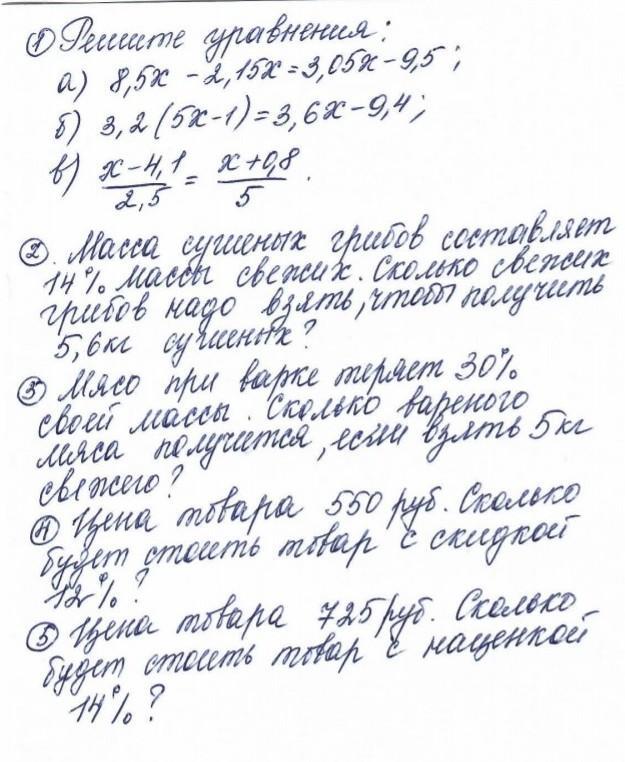 ① Решите уравнения:
а) 8,5x - 2,15x = 3,05x - 9,5;
б) 3,2(5x-1) = 3,6x - 9,4;
в) \frac{x-4,1}{2,5} = \frac{x+0,8}{5}.
②. Масса сушеных грибов составляет
14% массы свежих. Сколько свежих
грибов надо взять, чтобы получить
5,6кг сушеных?
③ Мясо при варке теряет 30%
своей массы. Сколько вареного
мяса получится, если взять 5кг
свежего?
④ Цена товара 550 руб. Сколько
будет стоить товар с скидкой
12%?
⑤ Цена товара 725 руб. Сколько
будет стоить товар с наценкой
14%?